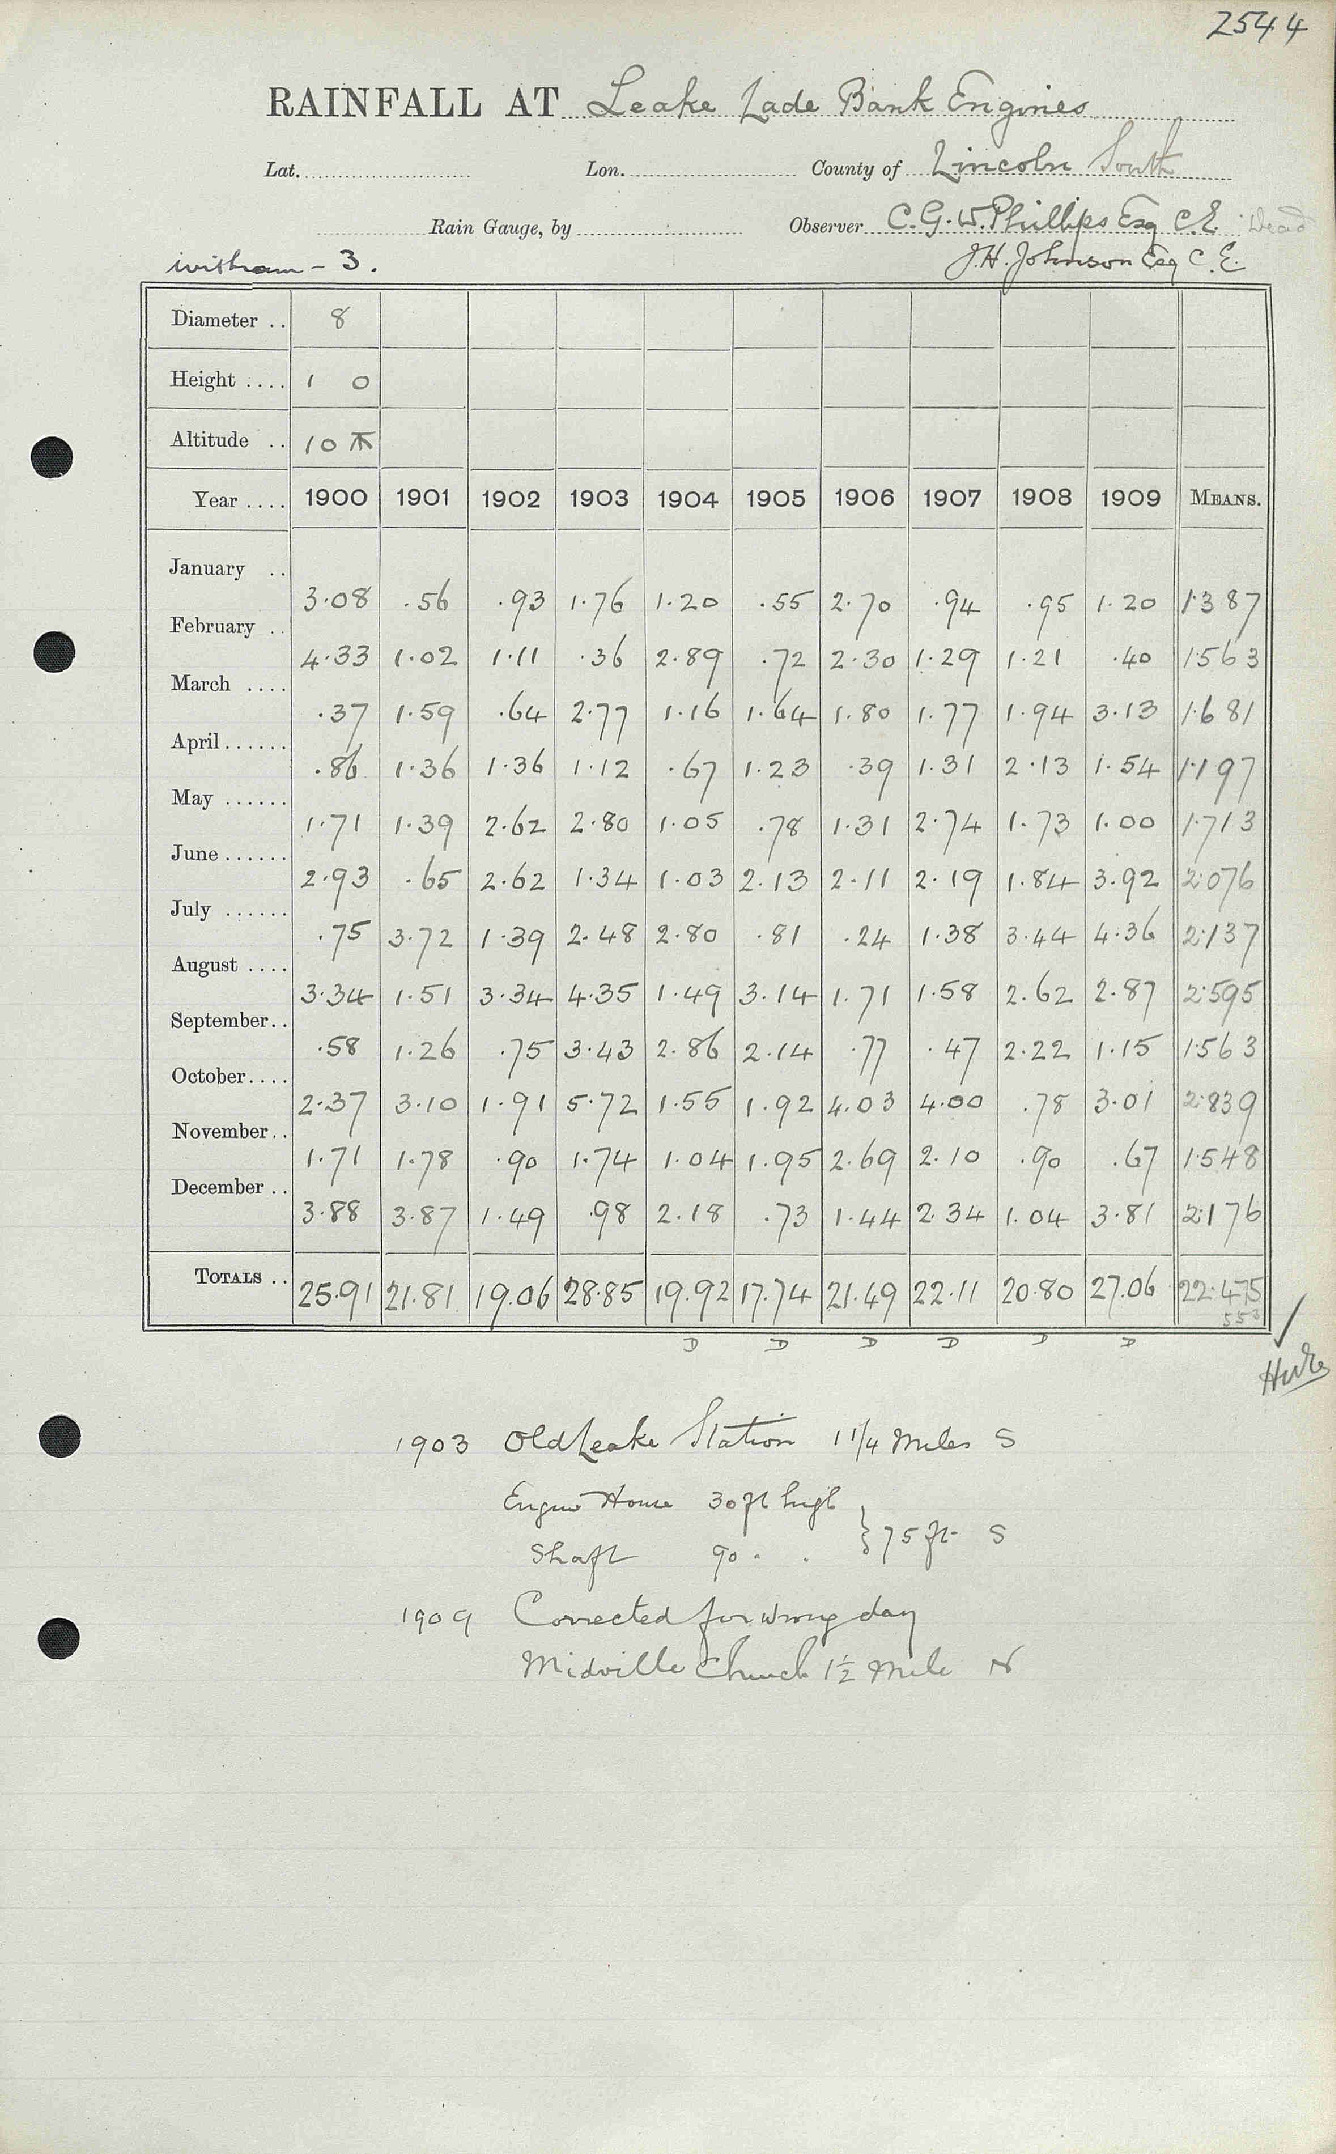 2544
RAINFALL AT Leake Lade Bank Engines
Lat. Lon. County of Lincoln South
Rain Gauge, by Observer C. G. W. Phillips Esq C.E. Dead
Witham - 3. J. H. Johnson Esq C.E.
Diameter .. 8
Height .... 1 0
Altitude .. 10 ⊼
Year .... 1900 1901 1902 1903 1904 1905 1906 1907 1908 1909 MEANS.
January .. 3.08 .56 .93 1.76 1.20 .55 2.70 .94 .95 1.20 1.387
February .. 4.33 1.02 1.11 .36 2.89 .72 2.30 1.29 1.21 .40 1.563
March .... .37 1.59 .64 2.77 1.16 1.64 1.80 1.77 1.94 3.13 1.681
April ...... .86 1.36 1.36 1.12 .67 1.23 .39 1.31 2.13 1.54 1.197
May ...... 1.71 1.39 2.62 2.80 1.05 .78 1.31 2.74 1.73 1.00 1.713
June ...... 2.93 .65 2.62 1.34 1.03 2.13 2.11 2.19 1.84 3.92 2.076
July ...... .75 3.72 1.39 2.48 2.80 .81 .24 1.38 3.44 4.36 2.137
August .... 3.34 1.51 3.34 4.35 1.49 3.14 1.71 1.58 2.62 2.87 2.595
September .. .58 1.26 .75 3.43 2.86 2.14 .77 .47 2.22 1.15 1.563
October .... 2.37 3.10 1.91 5.72 1.55 1.92 4.03 4.00 .78 3.01 2.839
November .. 1.71 1.78 .90 1.74 1.04 1.95 2.69 2.10 .90 .67 1.548
December .. 3.88 3.87 1.49 .98 2.18 .73 1.44 2.34 1.04 3.81 2.176
TOTALS .. 25.91 21.81 19.06 28.85 19.92 17.74 21.49 22.11 20.80 27.06 22.475
553
D D D D D D
1903 Old Leake Station 1 1/4 Miles S
Engine House 30 ft high
Shaft 90 " " } 75 ft S
1909 Corrected for wrong day
Midville Church 1½ Mile N